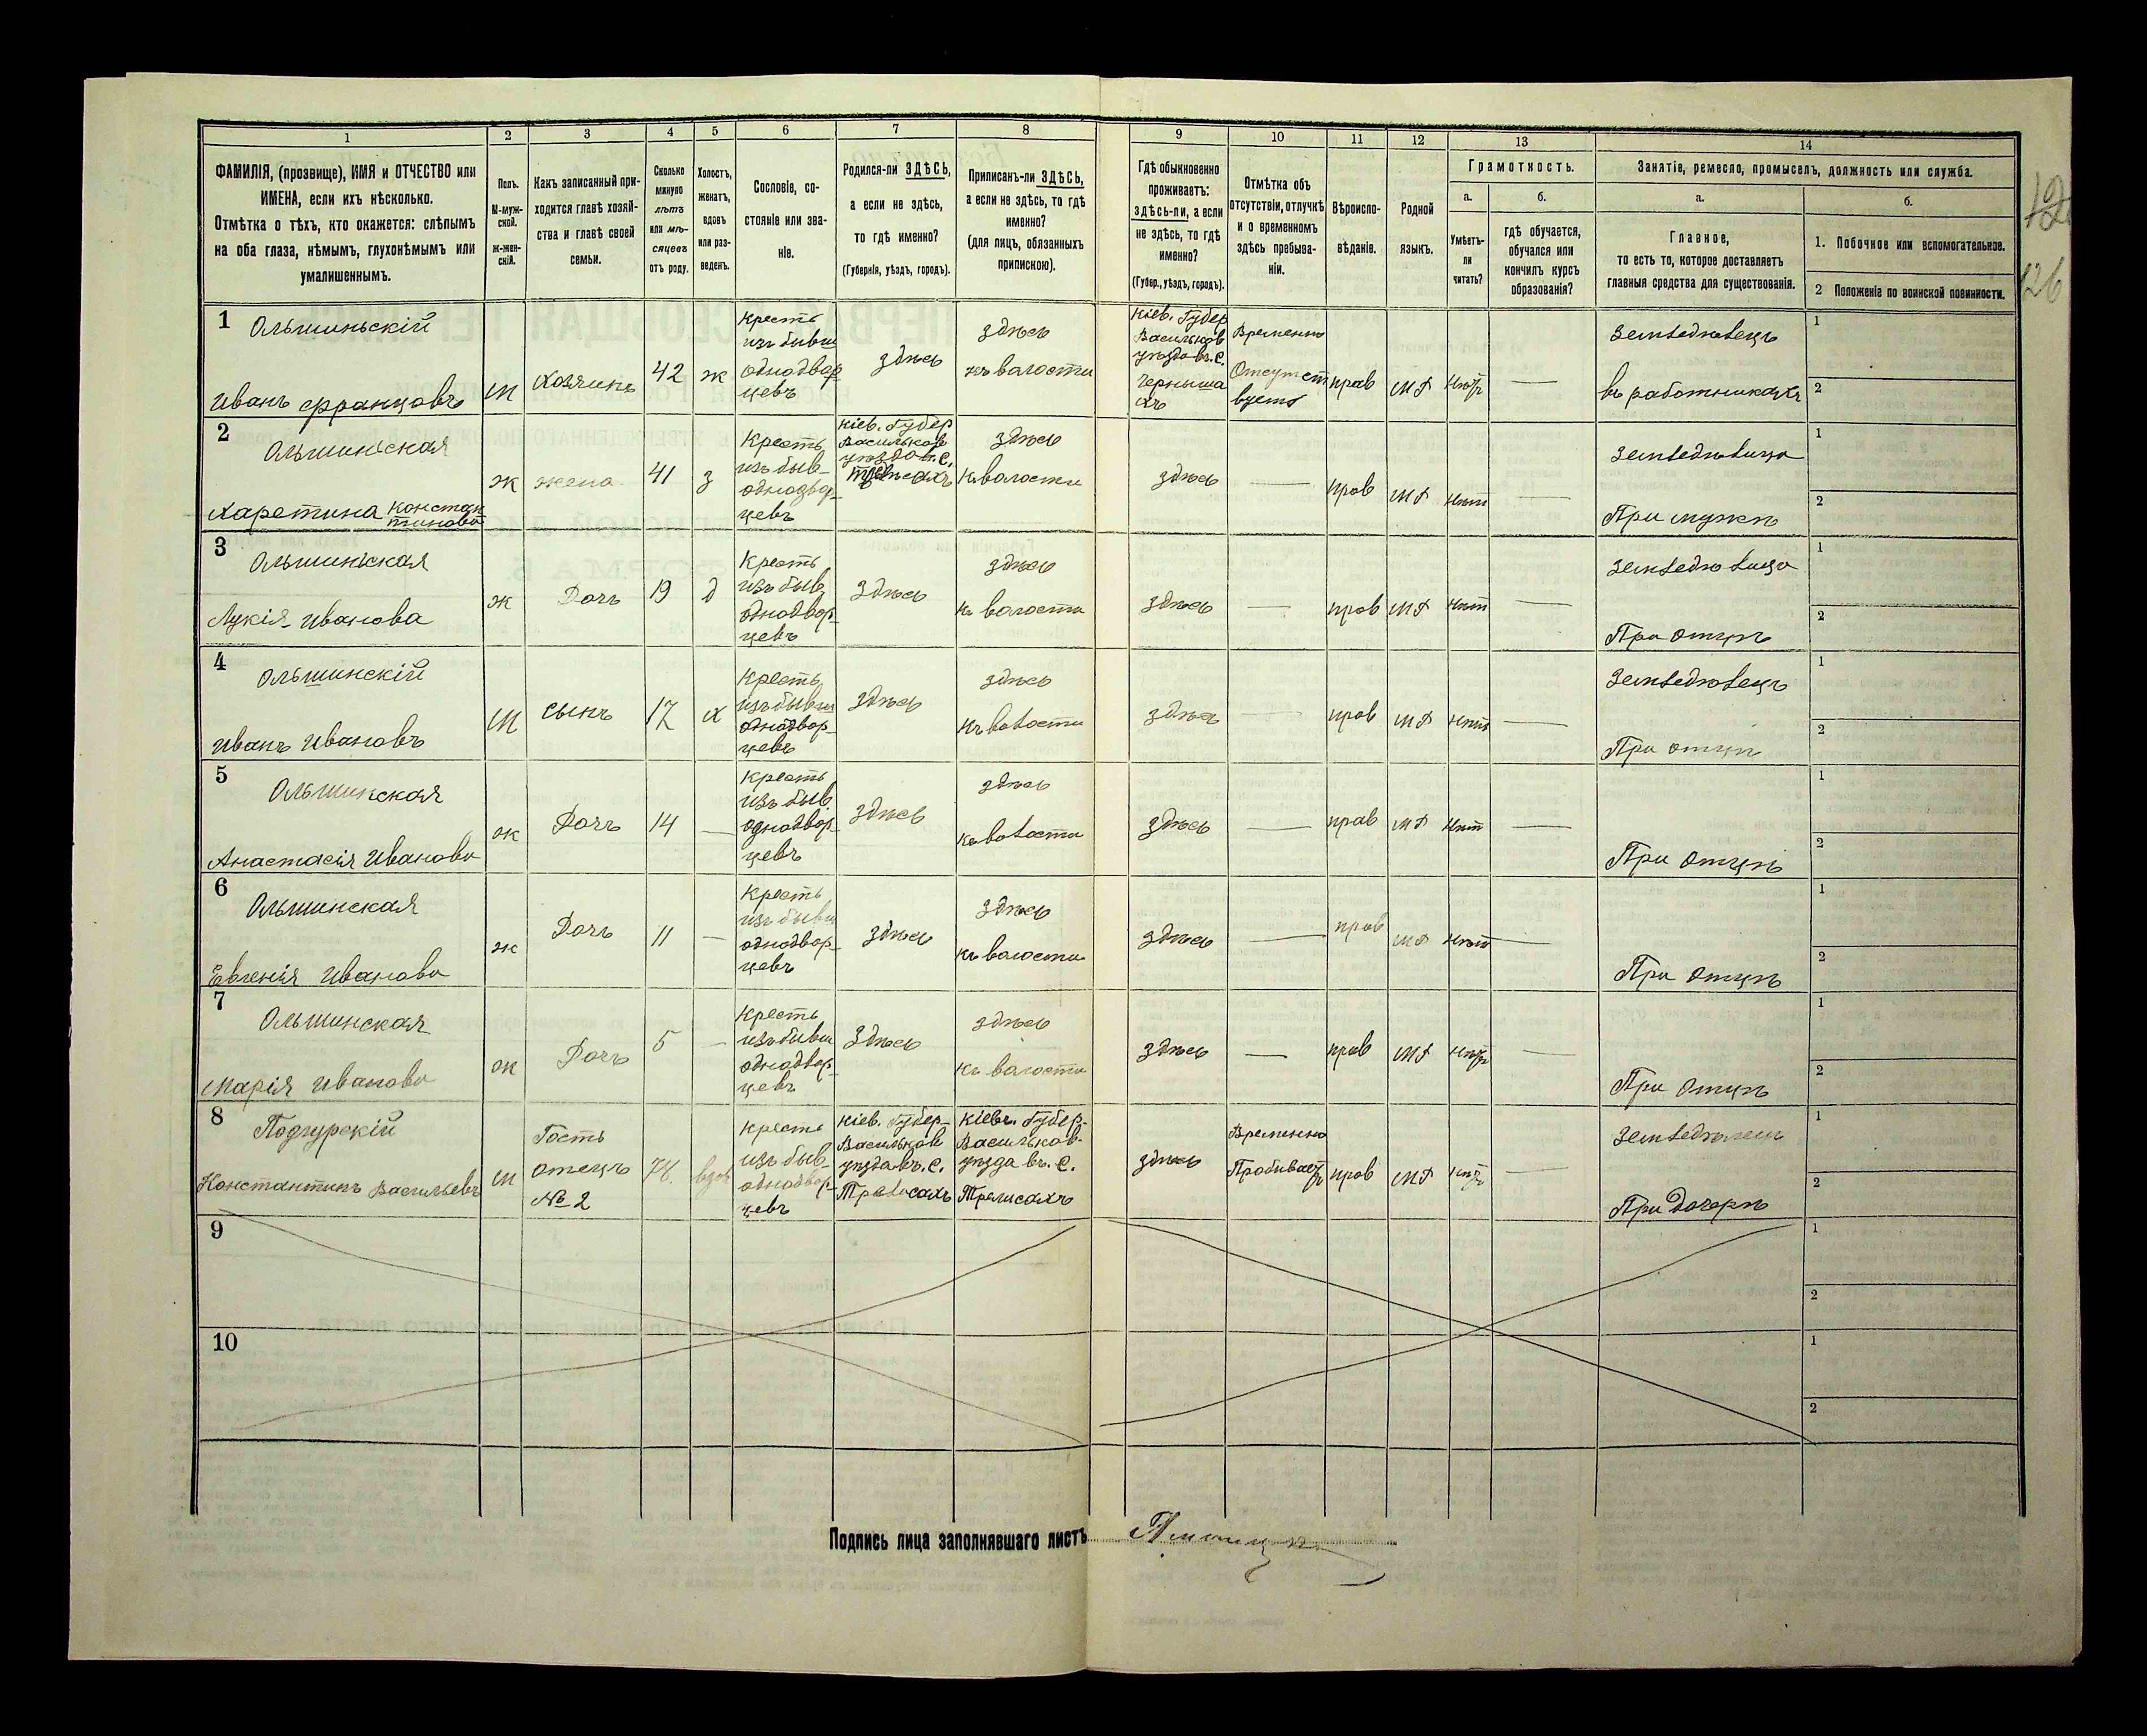 1 2 3 4 5 6 7 8 9 10 11 12 13 14
ФАМИЛІЯ, (прозвище), ИМЯ и ОТЧЕСТВО или
ИМЕНА, если ихъ нѣсколько.
Отмѣтка о тѣхъ, кто окажется: слѣпымъ
на оба глаза, нѣмымъ, глухонѣмымъ или
умалишеннымъ.
Полъ.
М-муж-
ской.
ж-жен-
скій.
Какъ записанный при-
ходится главѣ хозяй-
ства и главѣ своей
семьи.
Сколько
минуло
лѣтъ
или мѣ-
сяцевъ
отъ роду.
Холостъ,
женатъ,
вдовъ
или раз-
веденъ.
Сословіе, со-
стояніе или зва-
ніе.
Родился-ли ЗДѢСЬ,
а если не здѣсь,
то гдѣ именно?
(Губернія, уѣздъ, городъ).
Приписанъ-ли ЗДѢСЬ,
а если не здѣсь, то гдѣ
именно?
(для лицъ, обязанныхъ
припискою).
Гдѣ обыкновенно
проживаетъ:
ЗДѢСЬ-ЛИ, а если
не здѣсь, то гдѣ
именно?
(Губер., уѣздъ, городъ).
Отмѣтка объ
отсутствіи, отлучкѣ
и о временномъ
здѣсь пребыва-
ніи.
Вѣроиспо-
вѣданіе.
Родной
языкъ.
Грамотность.
а.
Умѣетъ-
ли
читать?
б.
гдѣ обучается,
обучался или
кончилъ курсъ
образованія?
Занятіе, ремесло, промыселъ, должность или служба.
а.
Главное,
то есть то, которое доставляетъ
главныя средства для существованія.
б.
1. Побочное или вспомогательное.
2 Положеніе по воинской повинности.
126
1
Ольшиньскій
Иванъ Францовъ
М
Хозяинъ
42
ж
Кресть
изъ бывш
однодвор
цевъ
здѣсь
здѣсь
къ волости
Кіев. Губер
Васильков
уѣзда въ с.
Черныша
хъ
Временно
Отсутст
вуетъ
прав
МР
Нѣтъ
Земледѣлецъ
въ работникахъ
1
2
2
Ольшиньская
Харетина Констан
тинова
ж
жена
41
з
Кресть
изъ быв-
однодвор-
цевъ
Кіев. Губер
Васильков
уѣзда въ с.
здѣсь
къ волости
здѣсь
прав
МР
Нѣтъ
Земледѣлица
При мужѣ
1
2
3
Ольшиньская
Лукія Иванова
ж
Дочь
19
д
Кресть
изъ быв
однодвор-
цевъ
здѣсь
здѣсь
къ волости
здѣсь
прав
МР
Нѣтъ
Земледѣлица
При отцѣ
1
2
4
Ольшинскій
Иванъ Ивановъ
М
сынъ
17
х
Кресть
изъ бывш
однодвор-
цевъ
здѣсь
здѣсь
къ волости
здѣсь
прав
МР
Нѣтъ
Земледѣлецъ
При отцѣ
1
2
5
Ольшинская
Анастасія Иванова
ж
Дочь
14
Кресть
изъ быв
однодвор-
цевъ
здѣсь
здѣсь
къ волости
здѣсь
прав
МР
Нѣтъ
При отцѣ
1
2
6
Ольшинская
Евгенія Иванова
ж
Дочь
11
Кресть
изъ бывш
однодвор-
цевъ
здѣсь
здѣсь
къ волости
здѣсь
прав
МР
Нѣтъ
При отцѣ
1
2
7
Ольшинская
Марія Иванова
ж
Дочь
5
Кресть
изъ бывш
однодвор-
цевъ
здѣсь
здѣсь
къ волости
здѣсь
прав
МР
Нѣтъ
При отцѣ
1
2
8
Подгурскій
Константинъ Васильевъ
М
Гость
отецъ
№ 2
78
вдов
Кресть
изъ быв-
однодвор-
цевъ
Кіев. Губер-
Васильков
уѣзда въ. с.
Трелисахъ
Кіевъ. Губер-
Васильков-
уѣзда въ. с.
Трелисахъ
здѣсь
Временно
Пробываетъ
прав
МР
Нѣтъ
Земледѣлецъ
При дочерѣ
1
2
9
1
2
10
1
2
Подпись лица заполнявшаго листъ